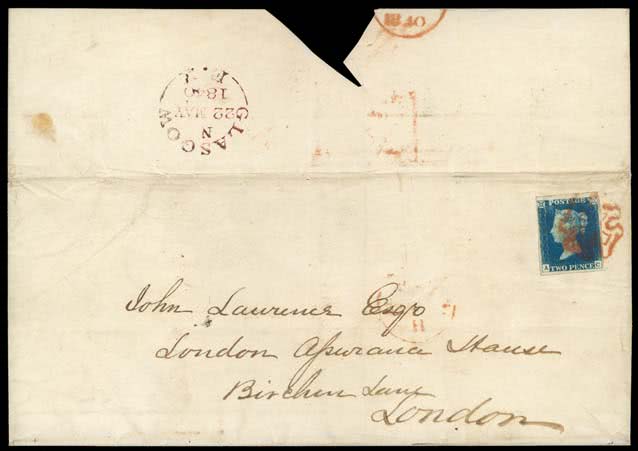 1840
GLASGOW
N
22 MAY
1840
POSTAGE
TWO PENCE
John Lawrence Esqr
London Assurance House
Birchin Lane
London